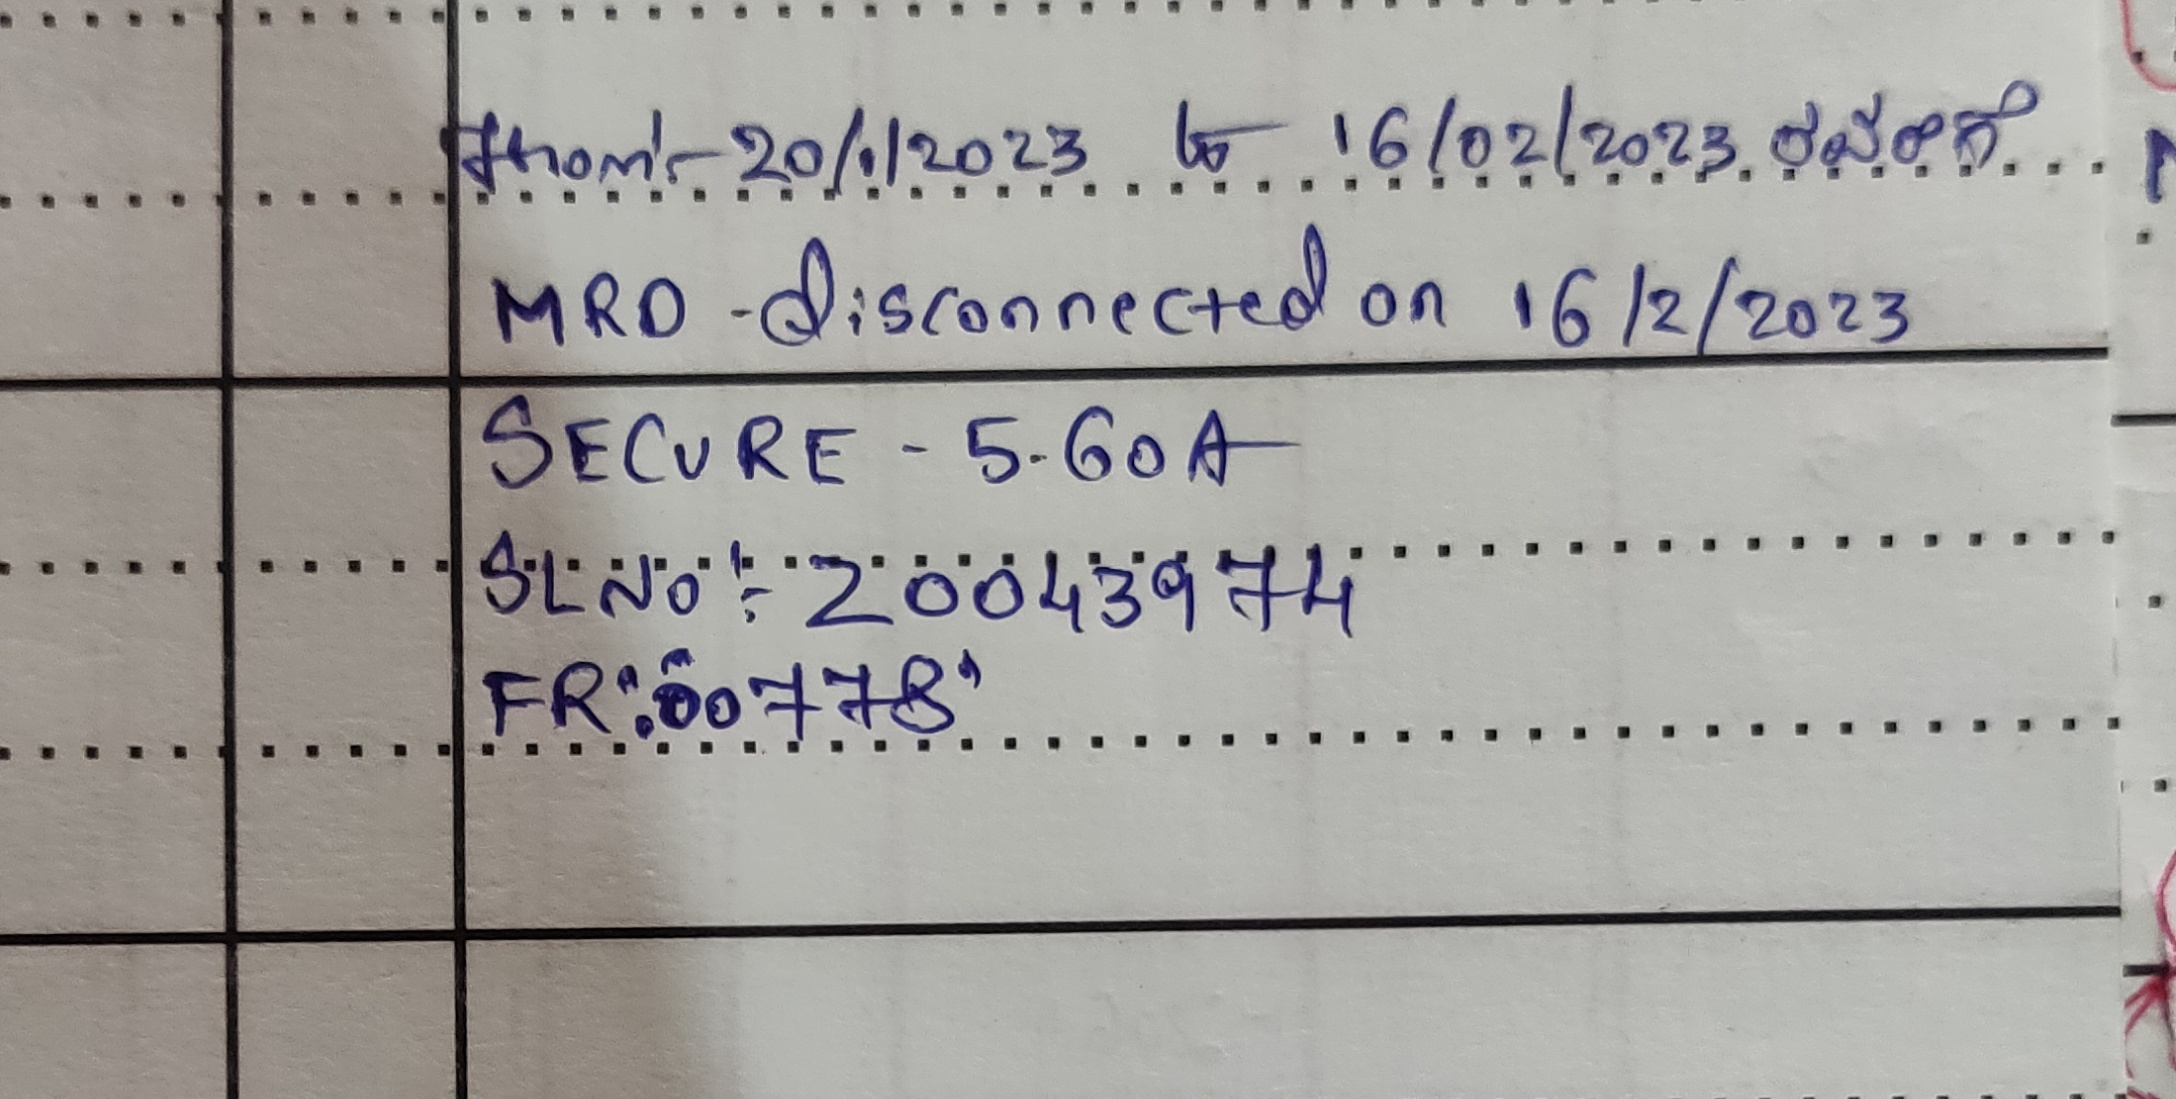 From:- 20/1/2023 to 16/02/2023
MRD - disconnected on 16/2/2023
SECURE - 5-60A
SL NO:- 20043974
FR: 00778